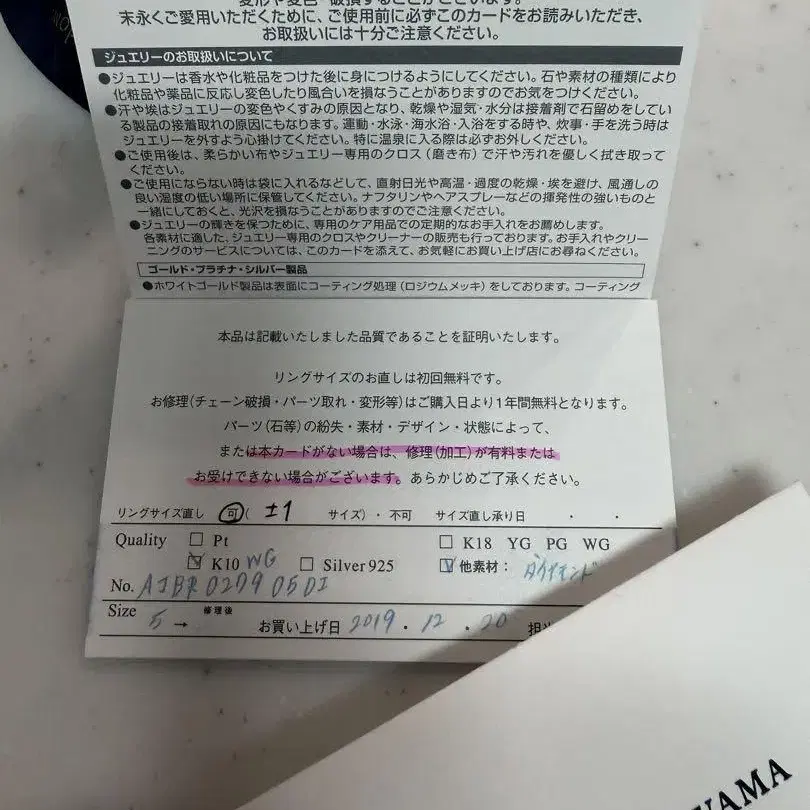 変形や変色・破損することがございます。
末永くご愛用いただくために、ご使用前に必ずこのカードをお読みいただき、
お取扱いには十分ご注意ください。
ジュエリーのお取扱いについて
●ジュエリーは香水や化粧品をつけた後に身につけるようにしてください。石や素材の種類により
化粧品や薬品に反応し変色したり風合いを損なうことがありますのでお気をつけください。
●汗や埃はジュエリーの変色やくすみの原因となり、乾燥や湿気・水分は接着剤で石留めをしてい
る製品の接着取れの原因にもなります。運動・水泳・海水浴・入浴をする時や、炊事・手を洗う時は
ジュエリーを外すよう心掛けてください。特に温泉に入る際は必ずお外しください。
●ご使用後は、柔らかい布やジュエリー専用のクロス(磨き布)で汗や汚れを優しく拭き取って
ください。
●ご使用にならない時は袋に入れるなどして、直射日光や高温・過度の乾燥・埃を避け、風通しの
良い湿度の低い場所に保管してください。ナフタリンやヘアスプレーなどの揮発性の強いものと
一緒にしておくと、光沢を損なうことがありますのでご注意ください。
●ジュエリーの輝きを保つために、専用のケア用品での定期的なお手入れをお薦めします。
各素材に適した、ジュエリー専用のクロスやクリーナーの販売も行っております。お手入れやクリー
ニングのサービスについては、このカードを添えて、お気軽にお買い上げ店にお尋ねください。
ゴールド・プラチナ・シルバー製品
●ホワイトゴールド製品は表面にコーティング処理(ロジウムメッキ)をしております。コーティング
本品は記載いたしました品質であることを証明いたします。
リングサイズのお直しは初回無料です。
お修理(チェーン破損・パーツ取れ・変形等)はご購入日より1年間無料となります。
パーツ(石等)の紛失・素材・デザイン・状態によって、
または本カードがない場合は、修理(加工)が有料または
お受けできない場合がございます。あらかじめご了承ください。
リングサイズ直し 可( ±1 サイズ)・不可 サイズ直し承り日 ・ ・
Quality □ Pt □ K18 YG PG WG
☑ K10 WG □ Silver925 ☑ 他素材: ダイヤモンド
No. AJBR 0299 05DI
Size 5 → 修理後 お買い上げ日 2019・12・20 担
YAMA